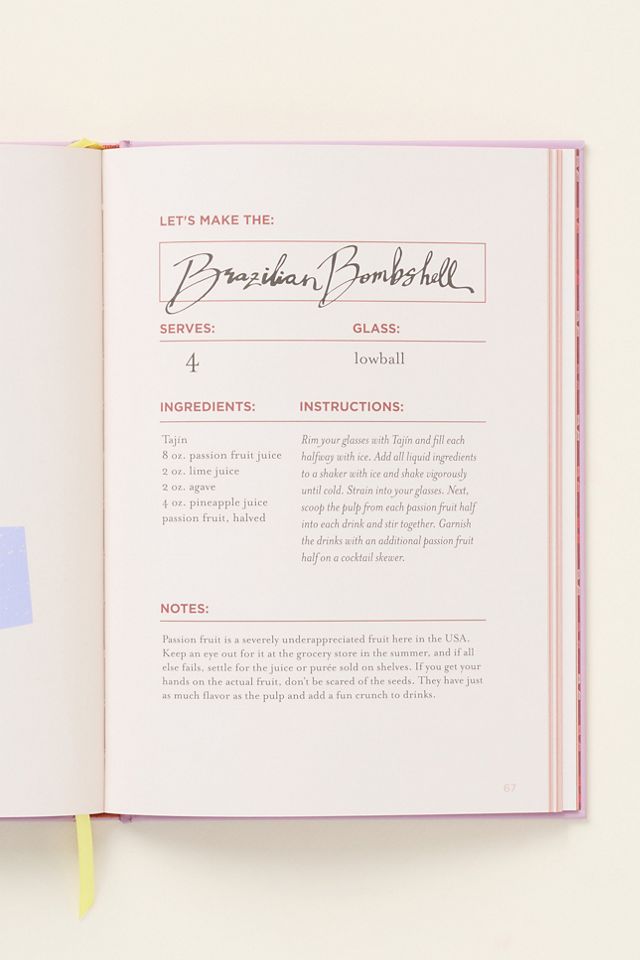 LET'S MAKE THE:
Brazilian Bombshell
SERVES: GLASS:
4 lowball
INGREDIENTS:
Tajín
8 oz. passion fruit juice
2 oz. lime juice
2 oz. agave
4 oz. pineapple juice
passion fruit, halved
INSTRUCTIONS:
Rim your glasses with Tajín and fill each
halfway with ice. Add all liquid ingredients
to a shaker with ice and shake vigorously
until cold. Strain into your glasses. Next,
scoop the pulp from each passion fruit half
into each drink and stir together. Garnish
the drinks with an additional passion fruit
half on a cocktail skewer.
NOTES:
Passion fruit is a severely underappreciated fruit here in the USA.
Keep an eye out for it at the grocery store in the summer, and if all
else fails, settle for the juice or purée sold on shelves. If you get your
hands on the actual fruit, don't be scared of the seeds. They have just
as much flavor as the pulp and add a fun crunch to drinks.
67